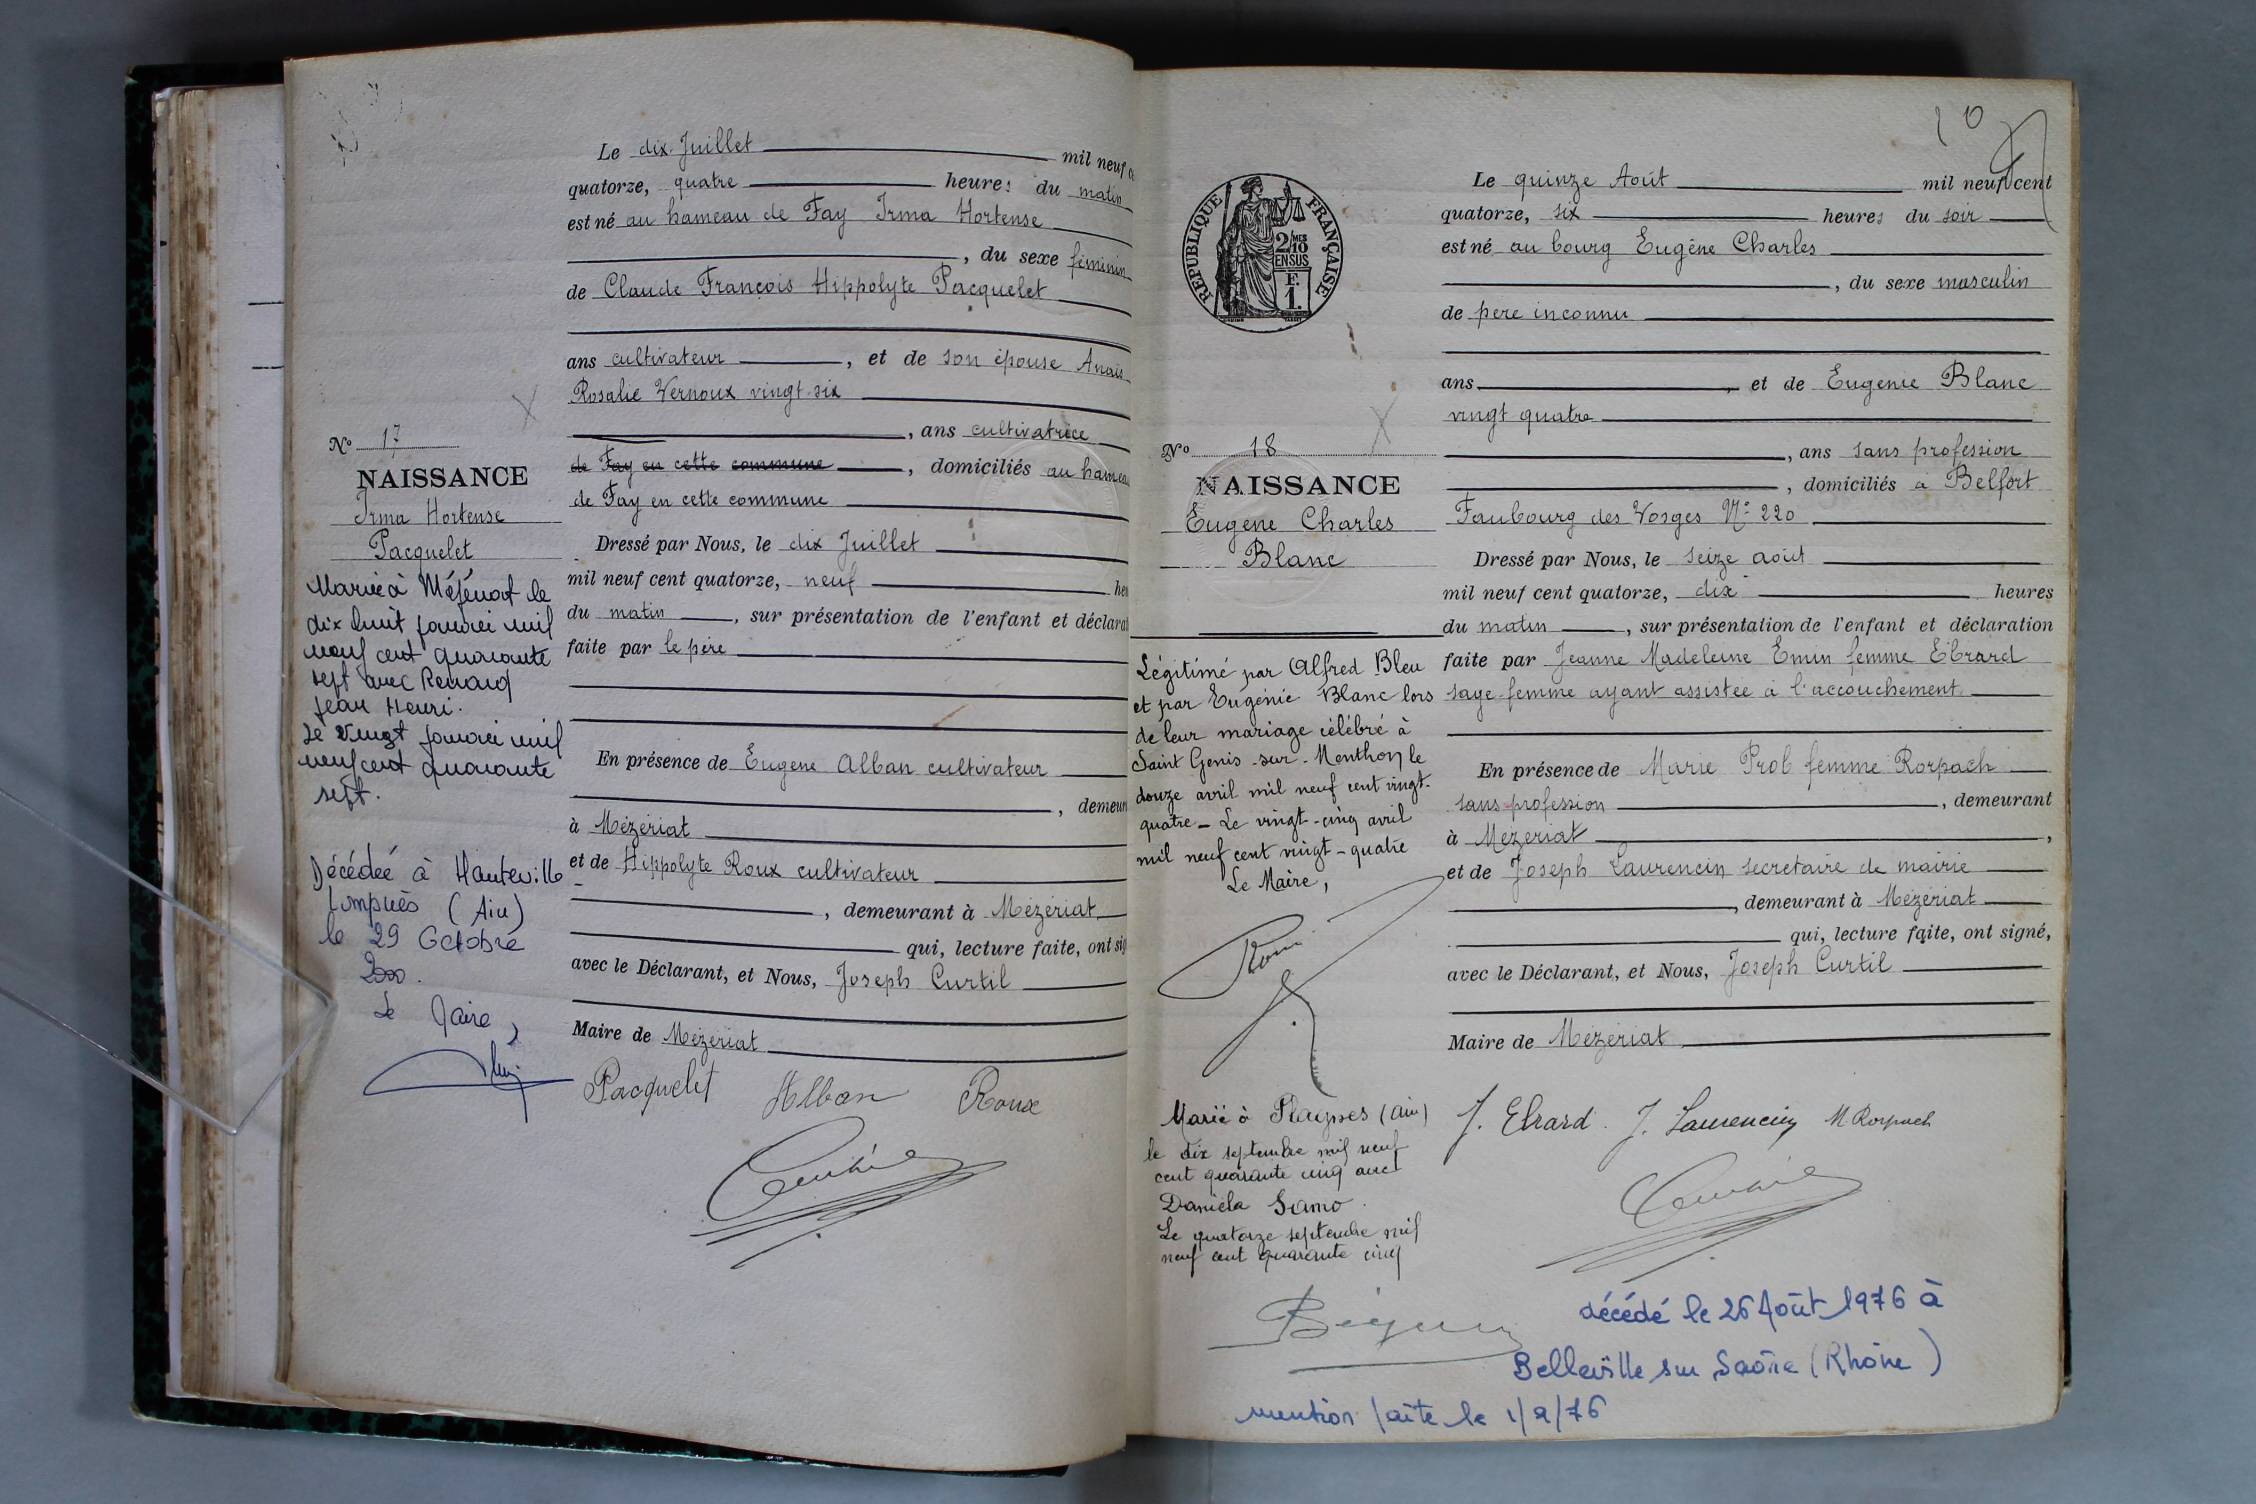 Le dix Juillet mil neuf c
quatorze, quatre heures du matin
est né au hameau de Fay Irma Hortense
, du sexe féminin
de Claude François Hippolyte Pacquelet
ans cultivateur , et de son épouse Anaïs
Rosalie Vernoux vingt-six
, ans cultivatrice
de Fay en cette commune , domiciliés au hameau
de Fay en cette commune
Dressé par Nous, le dix Juillet
mil neuf cent quatorze, neuf heu
du matin , sur présentation de l'enfant et déclarat
faite par le père
En présence de Eugène Alban cultivateur
, demeur
à Mézériat
et de Hippolyte Roux cultivateur
, demeurant à Mézériat
qui, lecture faite, ont sig
avec le Déclarant, et Nous, Joseph Curtil
Maire de Mézériat
Pacquelet Alban Roux
N° 17
NAISSANCE
Irma Hortense
Pacquelet
Mariée à le
dix huit janvier mil
neuf cent quarante
sept avec Renaud
Jean Henri.
Le vingt janvier mil
neuf cent quarante
sept.
Décédée à Hauteville
Lompnès (Ain)
le 29 Octobre
2000.
Le Maire,
10
RÉPUBLIQUE FRANÇAISE
2/10MES
EN SUS
F.
1.
N° 18
NAISSANCE
Eugène Charles
Blanc
Légitimé par Alfred Bleu
et par Eugénie Blanc lors
de leur mariage célébré à
Saint Genis-sur-Menthon le
douze avril mil neuf cent vingt-
quatre - Le vingt-cinq avril
mil neuf cent vingt-quatre
Le Maire,
Marié à (Ain)
le dix septembre mil neuf
cent quarante cinq avec
Daniéla Samo.
Le quatorze septembre mil
neuf cent quarante cinq
Le quinze Août mil neuf cent
quatorze, six heures du soir
est né au bourg Eugène Charles
, du sexe masculin
de père inconnu
ans , et de Eugénie Blanc
vingt quatre
, ans sans profession
, domiciliés à Belfort
Faubourg des Vosges N° 220
Dressé par Nous, le seize août
mil neuf cent quatorze, dix heures
du matin , sur présentation de l'enfant et déclaration
faite par Jeanne Madeleine Emin femme Ebrard
sage-femme ayant assistée à l'accouchement
En présence de Marie Prob femme Rorpach
sans profession , demeurant
à Mézériat ,
et de Joseph Laurencin secrétaire de mairie
, demeurant à Mézériat
qui, lecture faite, ont signé,
avec le Déclarant, et Nous, Joseph Curtil
Maire de Mézériat
J. Ebrard. J. Laurencin M Rorpach
décédé le 26 Août 1976 à
Belleville sur Saône (Rhône)
mention faite le 1/9/76